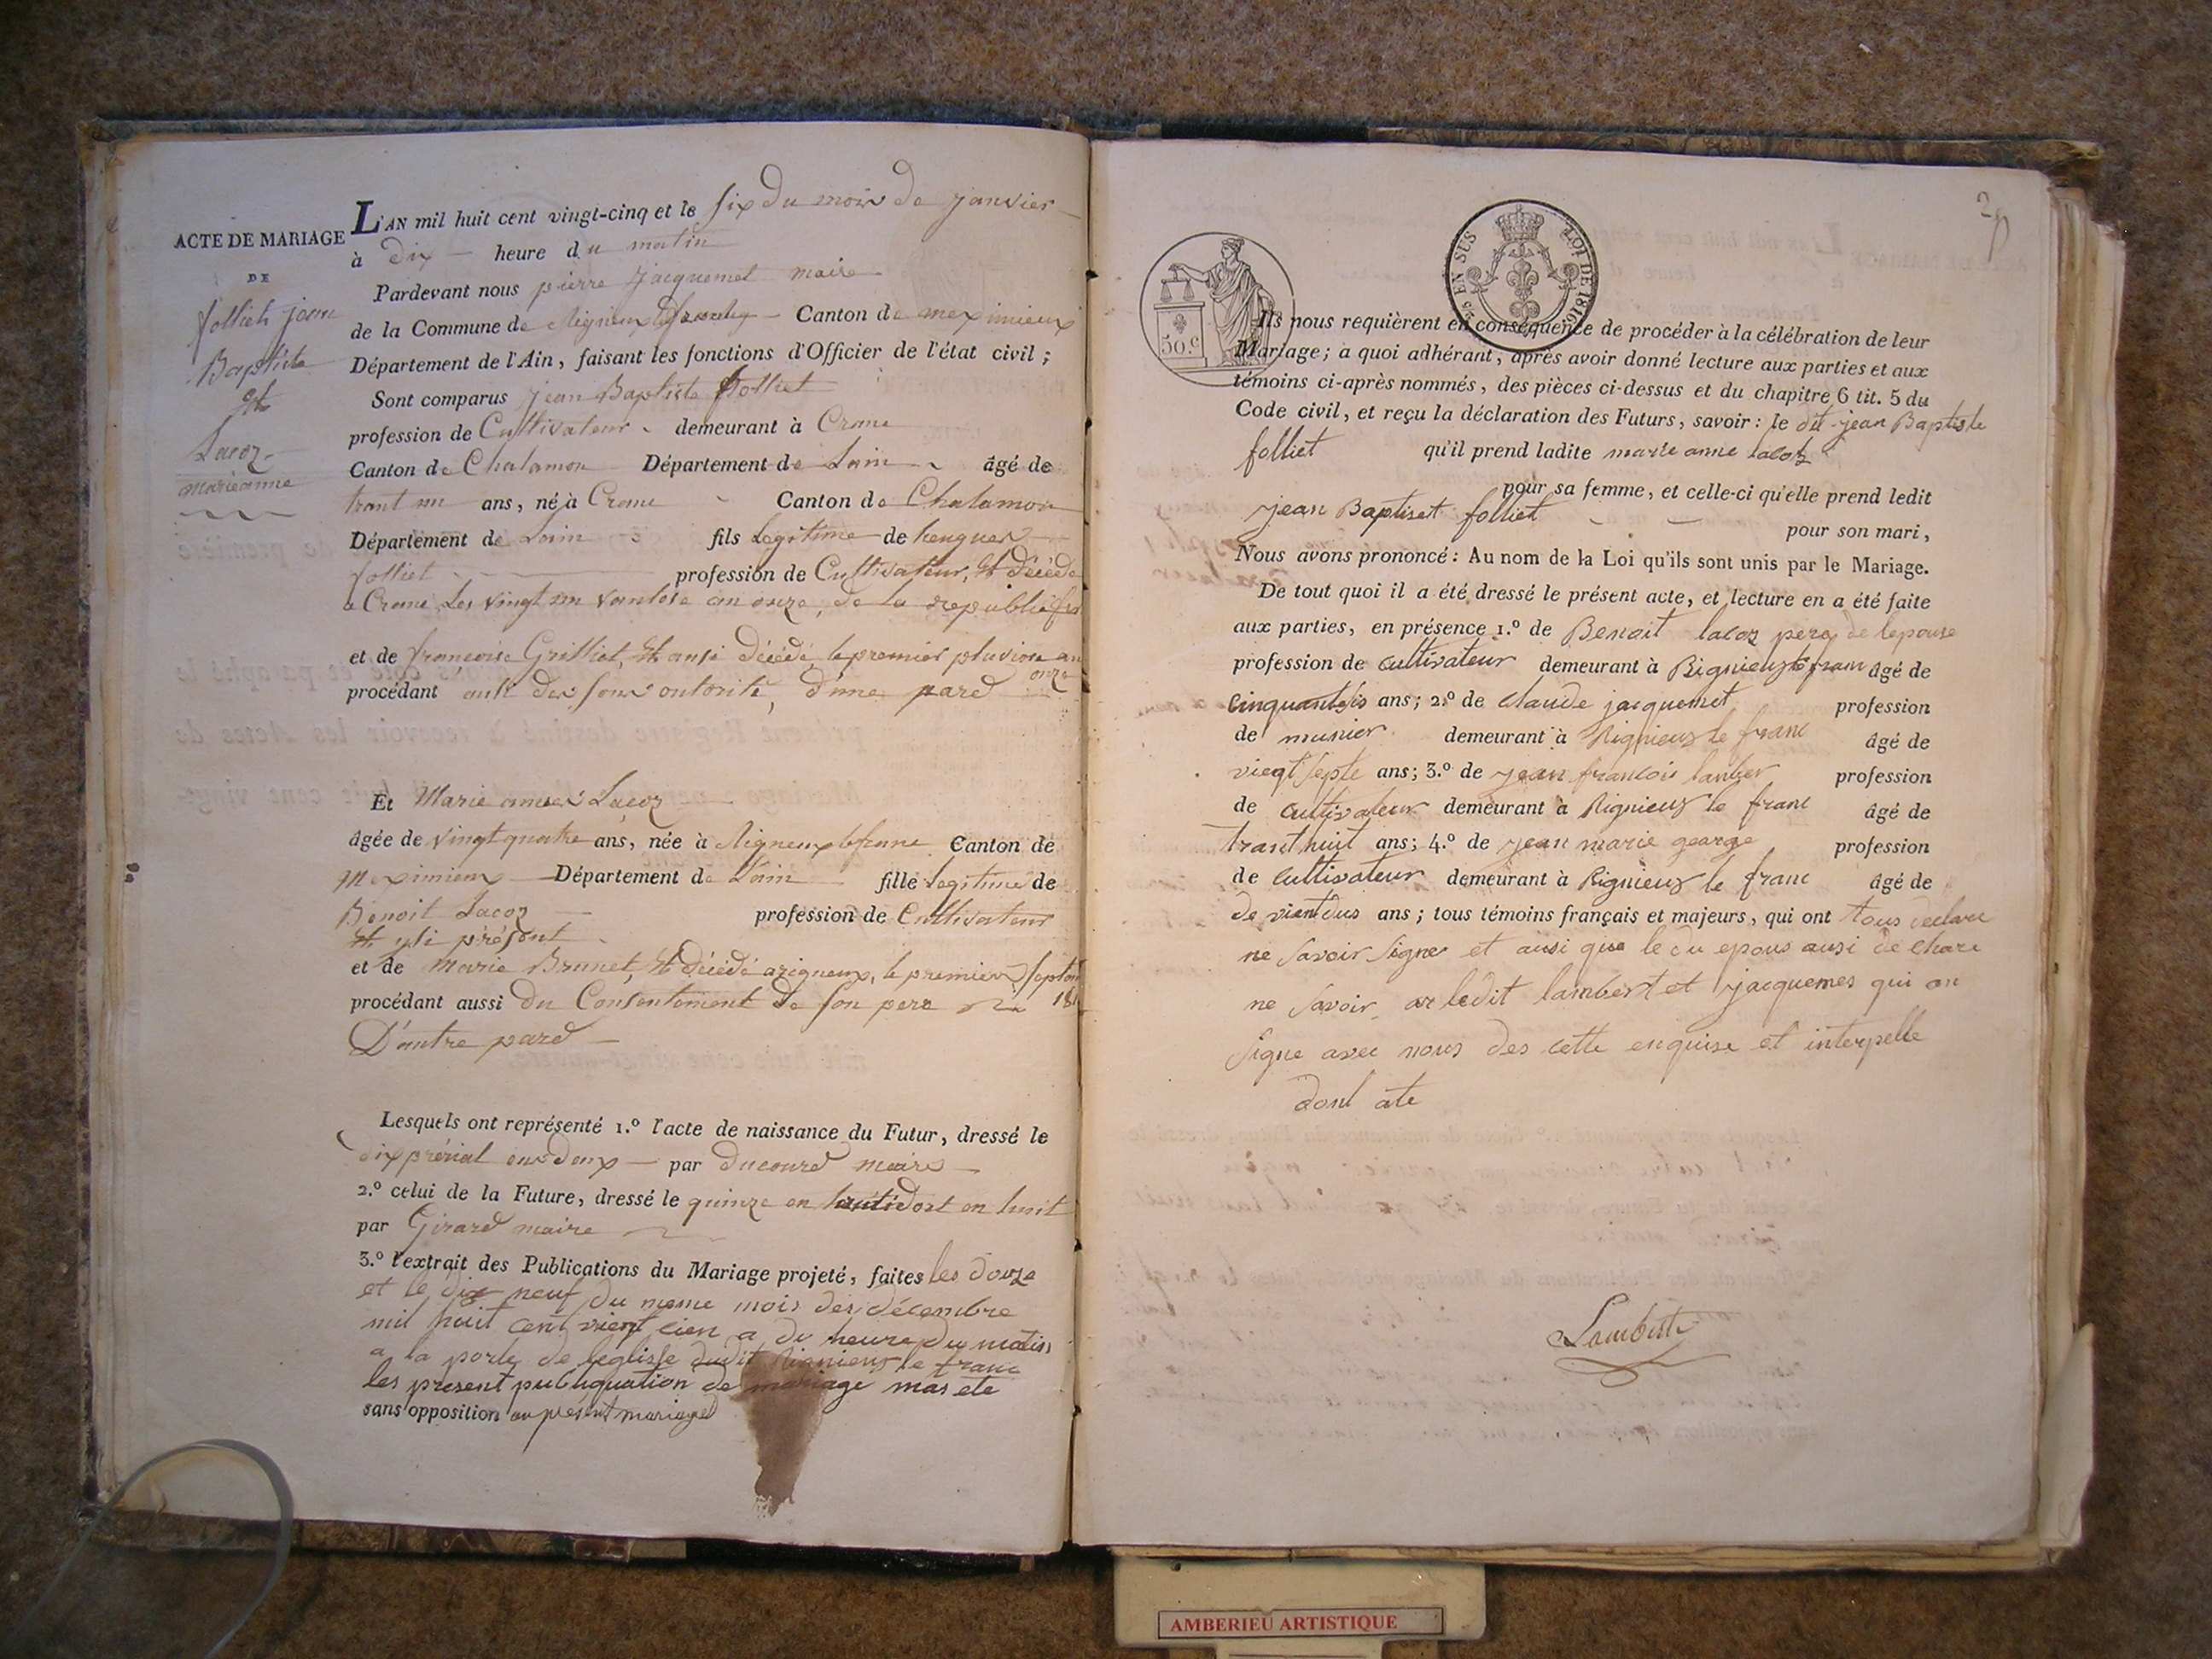 ACTE DE MARIAGE
DE
folliet jean
Baptiste
et
Lacoz
marieanne
L'AN mil huit cent vingt-cinq et le six du mois de janvier
à dix heure du matin
Pardevant nous pierre jacquemet maire
de la Commune de Canton de meximieux
Département de l'Ain, faisant les fonctions d'Officier de l'état civil ;
Sont comparus jean Baptiste folliet
profession de Cultivateur demeurant à Crane
Canton de Chalamon Département de Lain âgé de
trant un ans, né à Crane Canton de Chalamon
Département de Lain fils Legitime de
folliet profession de Cultivateur, et décédé
a Crane Les vingt un vantose an onze, de la republi
et de francoise Grilliet, et ausi décédé le premier pluviose an
onze
procédant d'une pard
Et Marie anne Lacoz
âgée de vingt quatre ans, née à Rigneux lefranc Canton de
Meximieux Département de Lain fille legitime de
Benoit Lacoz profession de Cultivateur
et present
et de Marie Brunet, et décédé arigneux, le premier
procédant aussi du Consentement de son pere
D'autre pard
Lesquels ont représenté 1.º l'acte de naissance du Futur, dressé le
dix prérial par ducourd maire
2.º celui de la Future, dressé le quinze en an huit
par Girard maire
3.º l'extrait des Publications du Mariage projeté, faites les douze
et le dix neuf du meme mois des décembre
mil huit cent a heure du matin
a la porte de leglisse dudit Rignieux le franc
les present publiquation de mariage mas ete
sans opposition au present mariage
50.c
EN SUS
LOI DE 1816
Ils nous requièrent en conséquence de procéder à la célébration de leur
Mariage; a quoi adhérant, après avoir donné lecture aux parties et aux
témoins ci-après nommés, des pièces ci-dessus et du chapitre 6 tit. 5 du
Code civil, et reçu la déclaration des Futurs, savoir : le dit jean Baptiste
folliet qu'il prend ladite marie anne lacoz
pour sa femme, et celle-ci qu'elle prend ledit
jean Baptiset folliet pour son mari,
Nous avons prononcé : Au nom de la Loi qu'ils sont unis par le Mariage.
De tout quoi il a été dressé le présent acte, et lecture en a été faite
aux parties, en présence 1.º de Benoit lacoz pere de lepouse
profession de cultivateur demeurant à Rignieux le franc âgé de
cinquantesis ans; 2.º de claude jacquemet profession
de munier demeurant à Rignieux le franc âgé de
viegt septe ans; 3.º de jean francois profession
de cultivateur demeurant à Rignieux le franc âgé de
trant huit ans; 4.º de jean marie george profession
de cultivateur demeurant à Rignieux le franc âgé de
de ans ; tous témoins français et majeurs, qui ont tous declare
ne savoir signe et ausi que le du epous ausi de
ne savoir ledit lambert et jacquemes qui on
signe avec nous des cette enquise et interpelle
dont ate
Lambert
AMBERIEU ARTISTIQUE